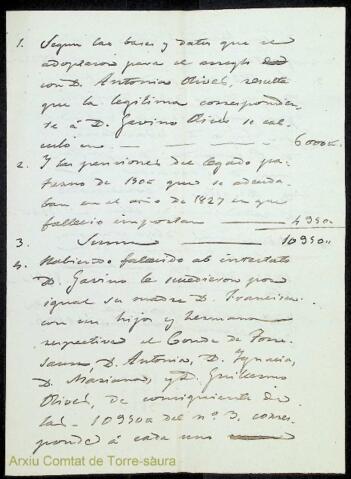 1. Segun las bases y datos que se
adoptaron para el arreglo
con D. Antonia Olives, resulta
que la legitima correspondien-
te á D. Gavino Olives se cal-
culó en — 6000
2. Y las pensiones del legado pa-
terno de 150 que se adeuda-
ban en el año de 1827 en que
falleció importan — 4950
3. Suma — 10950
4. Habiendo fallecido ab intestato
D. Gavino le sucedieron por
igual su madre D. Francisca
con sus hijos y hermanos
respective el Conde de Torre
Saura, D. Antonia, D. Ignacia,
D. Mariana, y D. Guillermo
Olives, de consiguiente de
las 10950 del nº 3, corres-
ponde á cada uno
Arxiu Comtat de Torre-saura